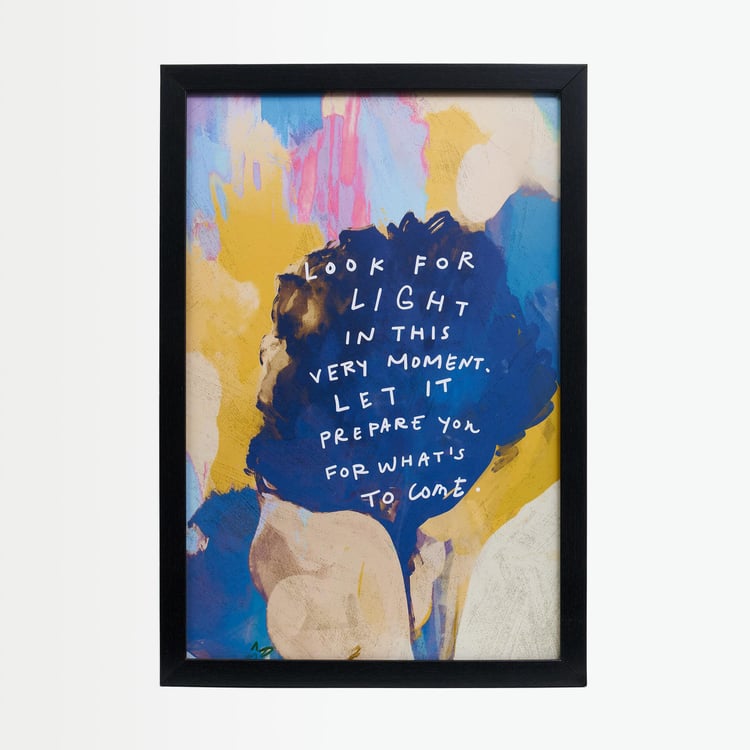 LOOK FOR
LIGHT
IN THIS
VERY MOMENT.
LET IT
PREPARE YOU
FOR WHAT'S
TO COME.